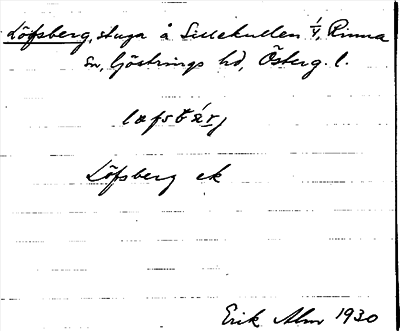 Löfsberg, stuga å Lillekullen 1/4, Rinna
sn, Göstrings hd, Österg. l.
Löfsberg ek
Erik Alm 1930